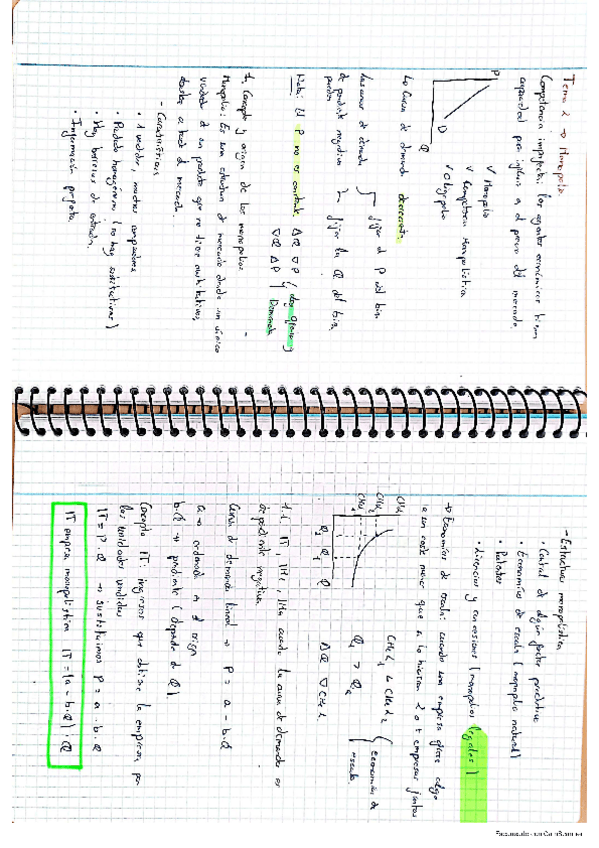 Tema 2 → Monopolio
Competencia imperfecta: los agentes económicos tienen
capacidad para influir en el precio del mercado
✓ Monopolio
✓ Competencia Monopolística
✓ Oligopolio
P
D
Q
La Curva de demanda decreciente
Las curvas de demanda
de pendiente negativa
pueden
fijar el P del bien
fijar la Q del bien
Nota: El P no es constante ΔQ ∇P
∇Q ΔP
Demanda
1. Concepto y origen de los monopolios
Monopolio: Es una estructura de mercado donde un único
vendedor de un producto que no tiene sustitutivos,
a todo el mercado.
- Características
• 1 vendedor, muchos compradores
• Producto homogéneo (no hay sustitutivos)
• Hay barreras de entrada.
• Información perfecta.
- Estructura monopolística
• Control de algún factor productivo
• Economías de escala (monopolio natural)
• Patentes
• Licencias y concesiones (monopolios legales)
→ Economías de escala: cuando una empresa ofrece algo
a un coste menor que si lo hiciesen 2 o + empresas juntas
CMeL
CMeL2
CMeL1
Q2 Q1 Q
CMeL1 < CMeL2
Q1 > Q2
economías de
escala.
ΔQ ∇CMeL
1.1. IT, IMe, IMa cuando la curva de demanda es
de pendiente negativa.
Curva de demanda lineal → P = a - b·Q
a → ordenada en el origen
b·Q → pendiente (depende de Q)
Concepto IT: ingresos que obtiene la empresa por
las unidades vendidas
IT = P · Q → sustituimos P = a - b·Q
IT empresa monopolística IT = (a - b·Q) · Q
Escaneado con CamScanner